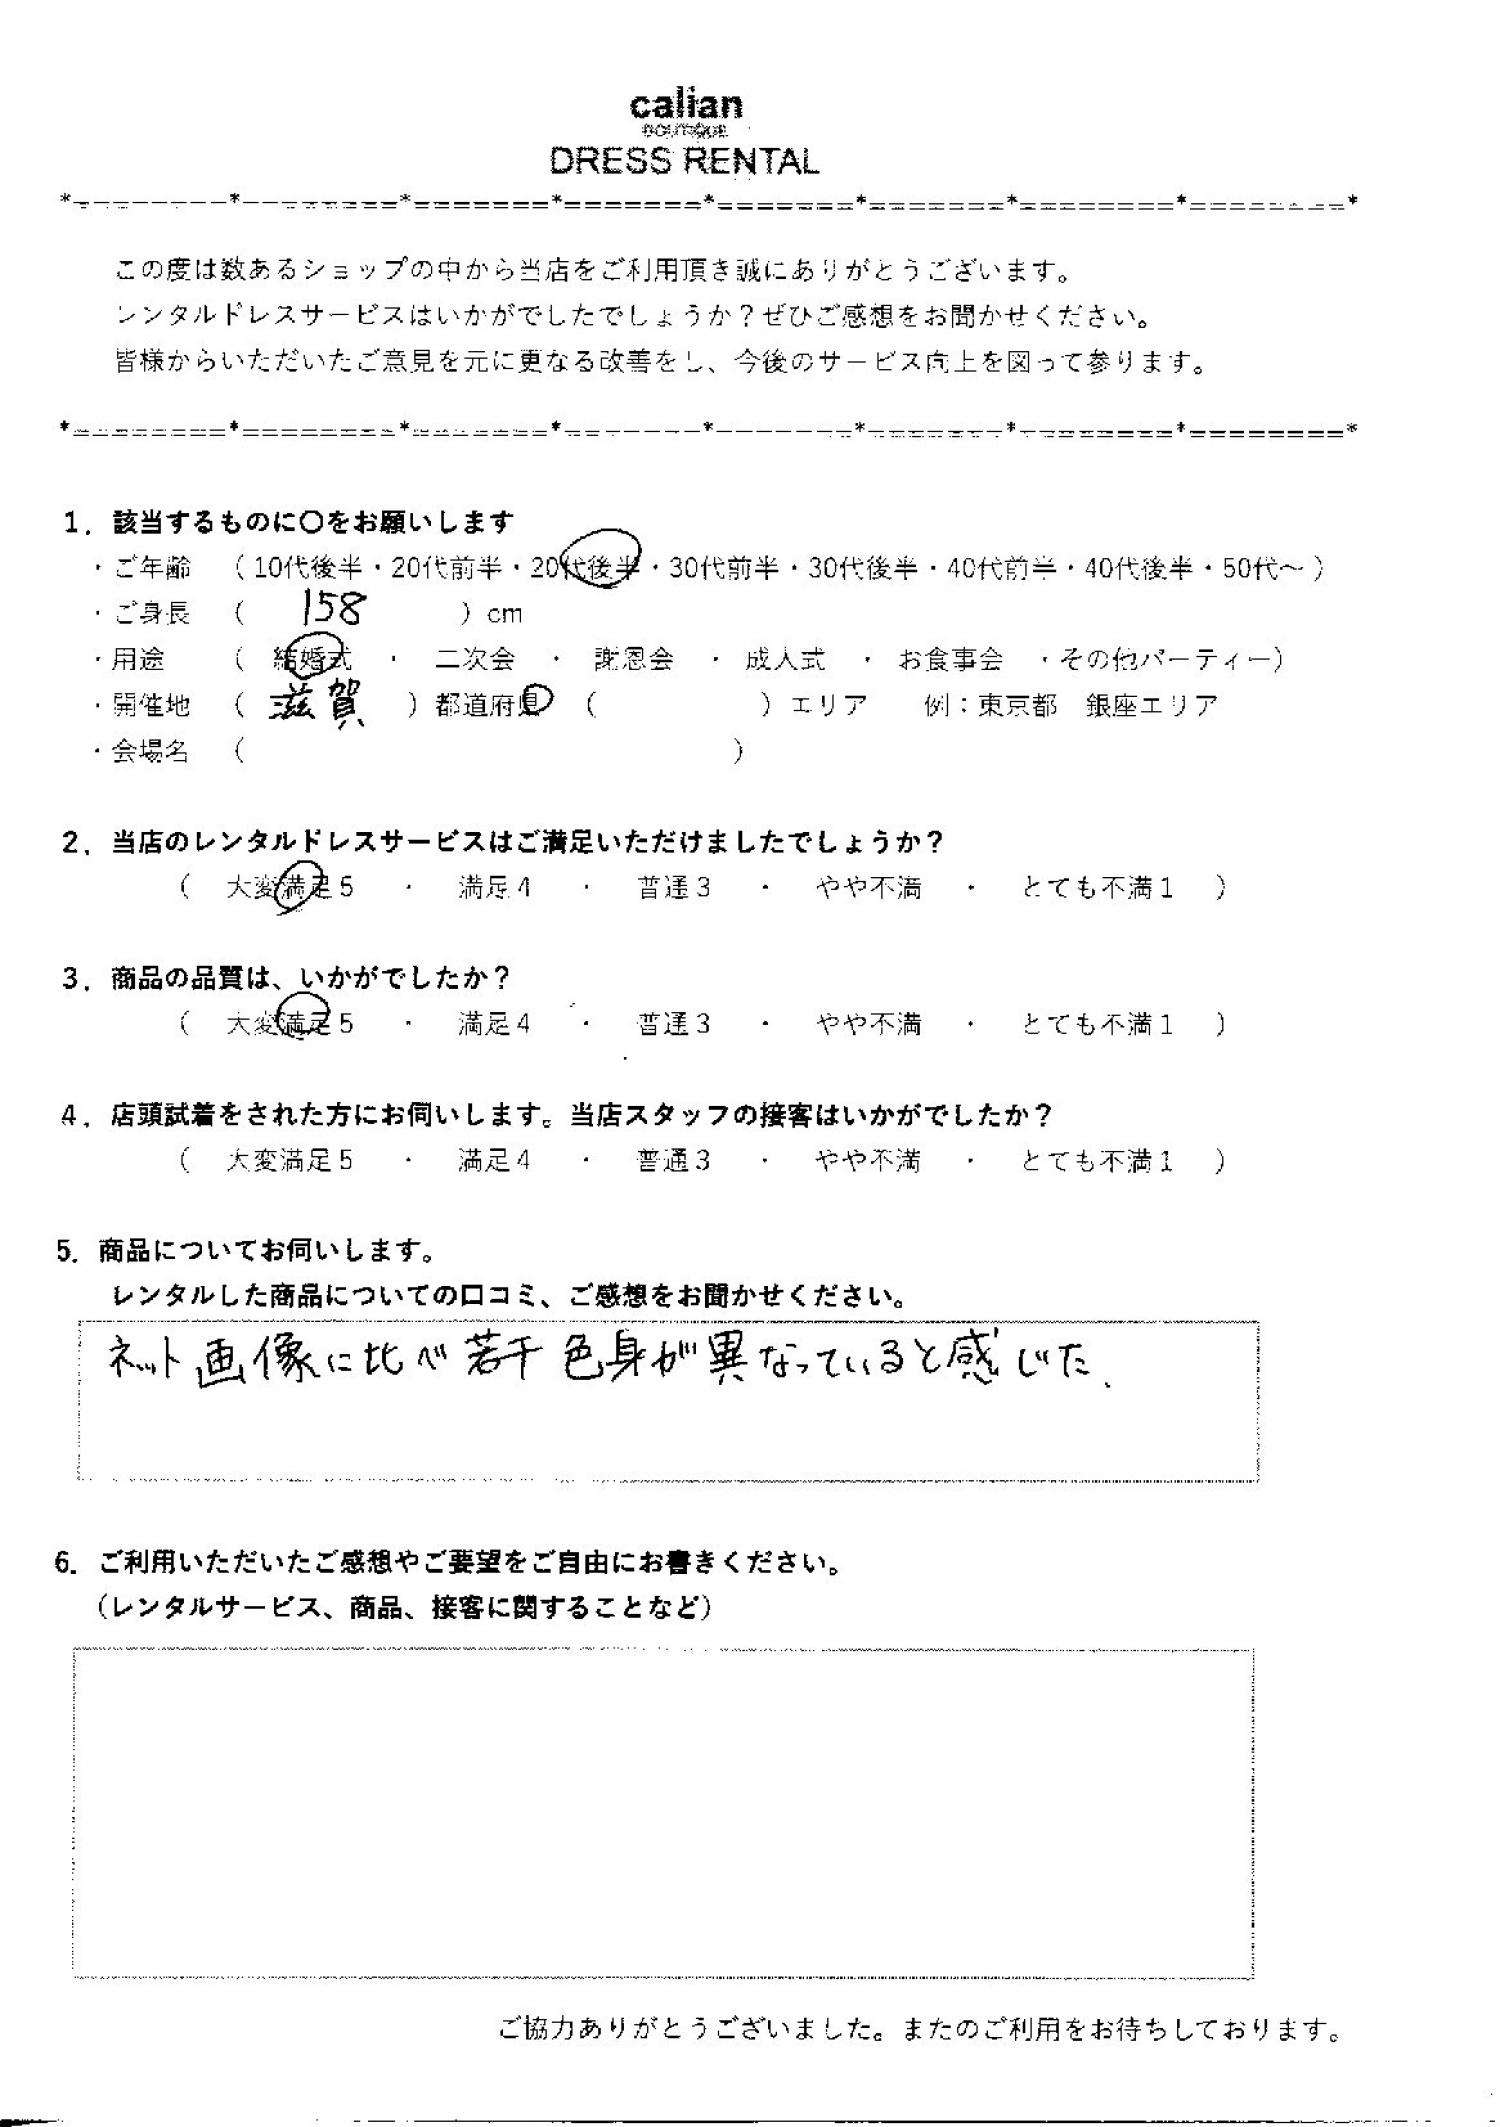 calian
BOUTIQUE
DRESS RENTAL
*========*========*=======*=======*=======*=======*========*========*
この度は数あるショップの中から当店をご利用頂き誠にありがとうございます。
レンタルドレスサービスはいかがでしたでしょうか？ぜひご感想をお聞かせください。
皆様からいただいたご意見を元に更なる改善をし、今後のサービス向上を図って参ります。
*========*========*=======*=======*=======*=======*========*========*
1．該当するものに〇をお願いします
・ご年齢 （10代後半・20代前半・20代後半・30代前半・30代後半・40代前半・40代後半・50代～）
・ご身長 （ 158 ）cm
・用途 （ 結婚式 ・ 二次会 ・ 謝恩会 ・ 成人式 ・ お食事会 ・その他パーティー）
・開催地 （ 滋賀 ）都道府県 （ ）エリア 例：東京都 銀座エリア
・会場名 （ ）
2．当店のレンタルドレスサービスはご満足いただけましたでしょうか？
（ 大変満足5 ・ 満足4 ・ 普通3 ・ やや不満 ・ とても不満1 ）
3．商品の品質は、いかがでしたか？
（ 大変満足5 ・ 満足4 ・ 普通3 ・ やや不満 ・ とても不満1 ）
4．店頭試着をされた方にお伺いします。当店スタッフの接客はいかがでしたか？
（ 大変満足5 ・ 満足4 ・ 普通3 ・ やや不満 ・ とても不満1 ）
5．商品についてお伺いします。
レンタルした商品についての口コミ、ご感想をお聞かせください。
ネット画像に比べ若干色身が異なっていると感じた.
6．ご利用いただいたご感想やご要望をご自由にお書きください。
（レンタルサービス、商品、接客に関することなど）
ご協力ありがとうございました。またのご利用をお待ちしております。